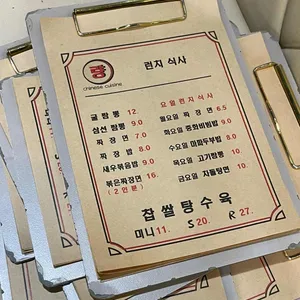 중
chinese cuisine
런치 식사
굴 짬 뽕 12.
삼선 짬뽕 9.0
짜 장 면 7.0
짜 장 밥 8.0
새우볶음밥 9.0
볶은짜장면 16.
(2인분)
요일런치식사
월요일 짜 장 면 6.5
화요일 중화비빔밥 9.0
수요일 마파두부밥 8.0
목요일 고기짬뽕 10.
금요일 차돌탕면 10.
찹쌀탕수육
미니11. S20. R27.